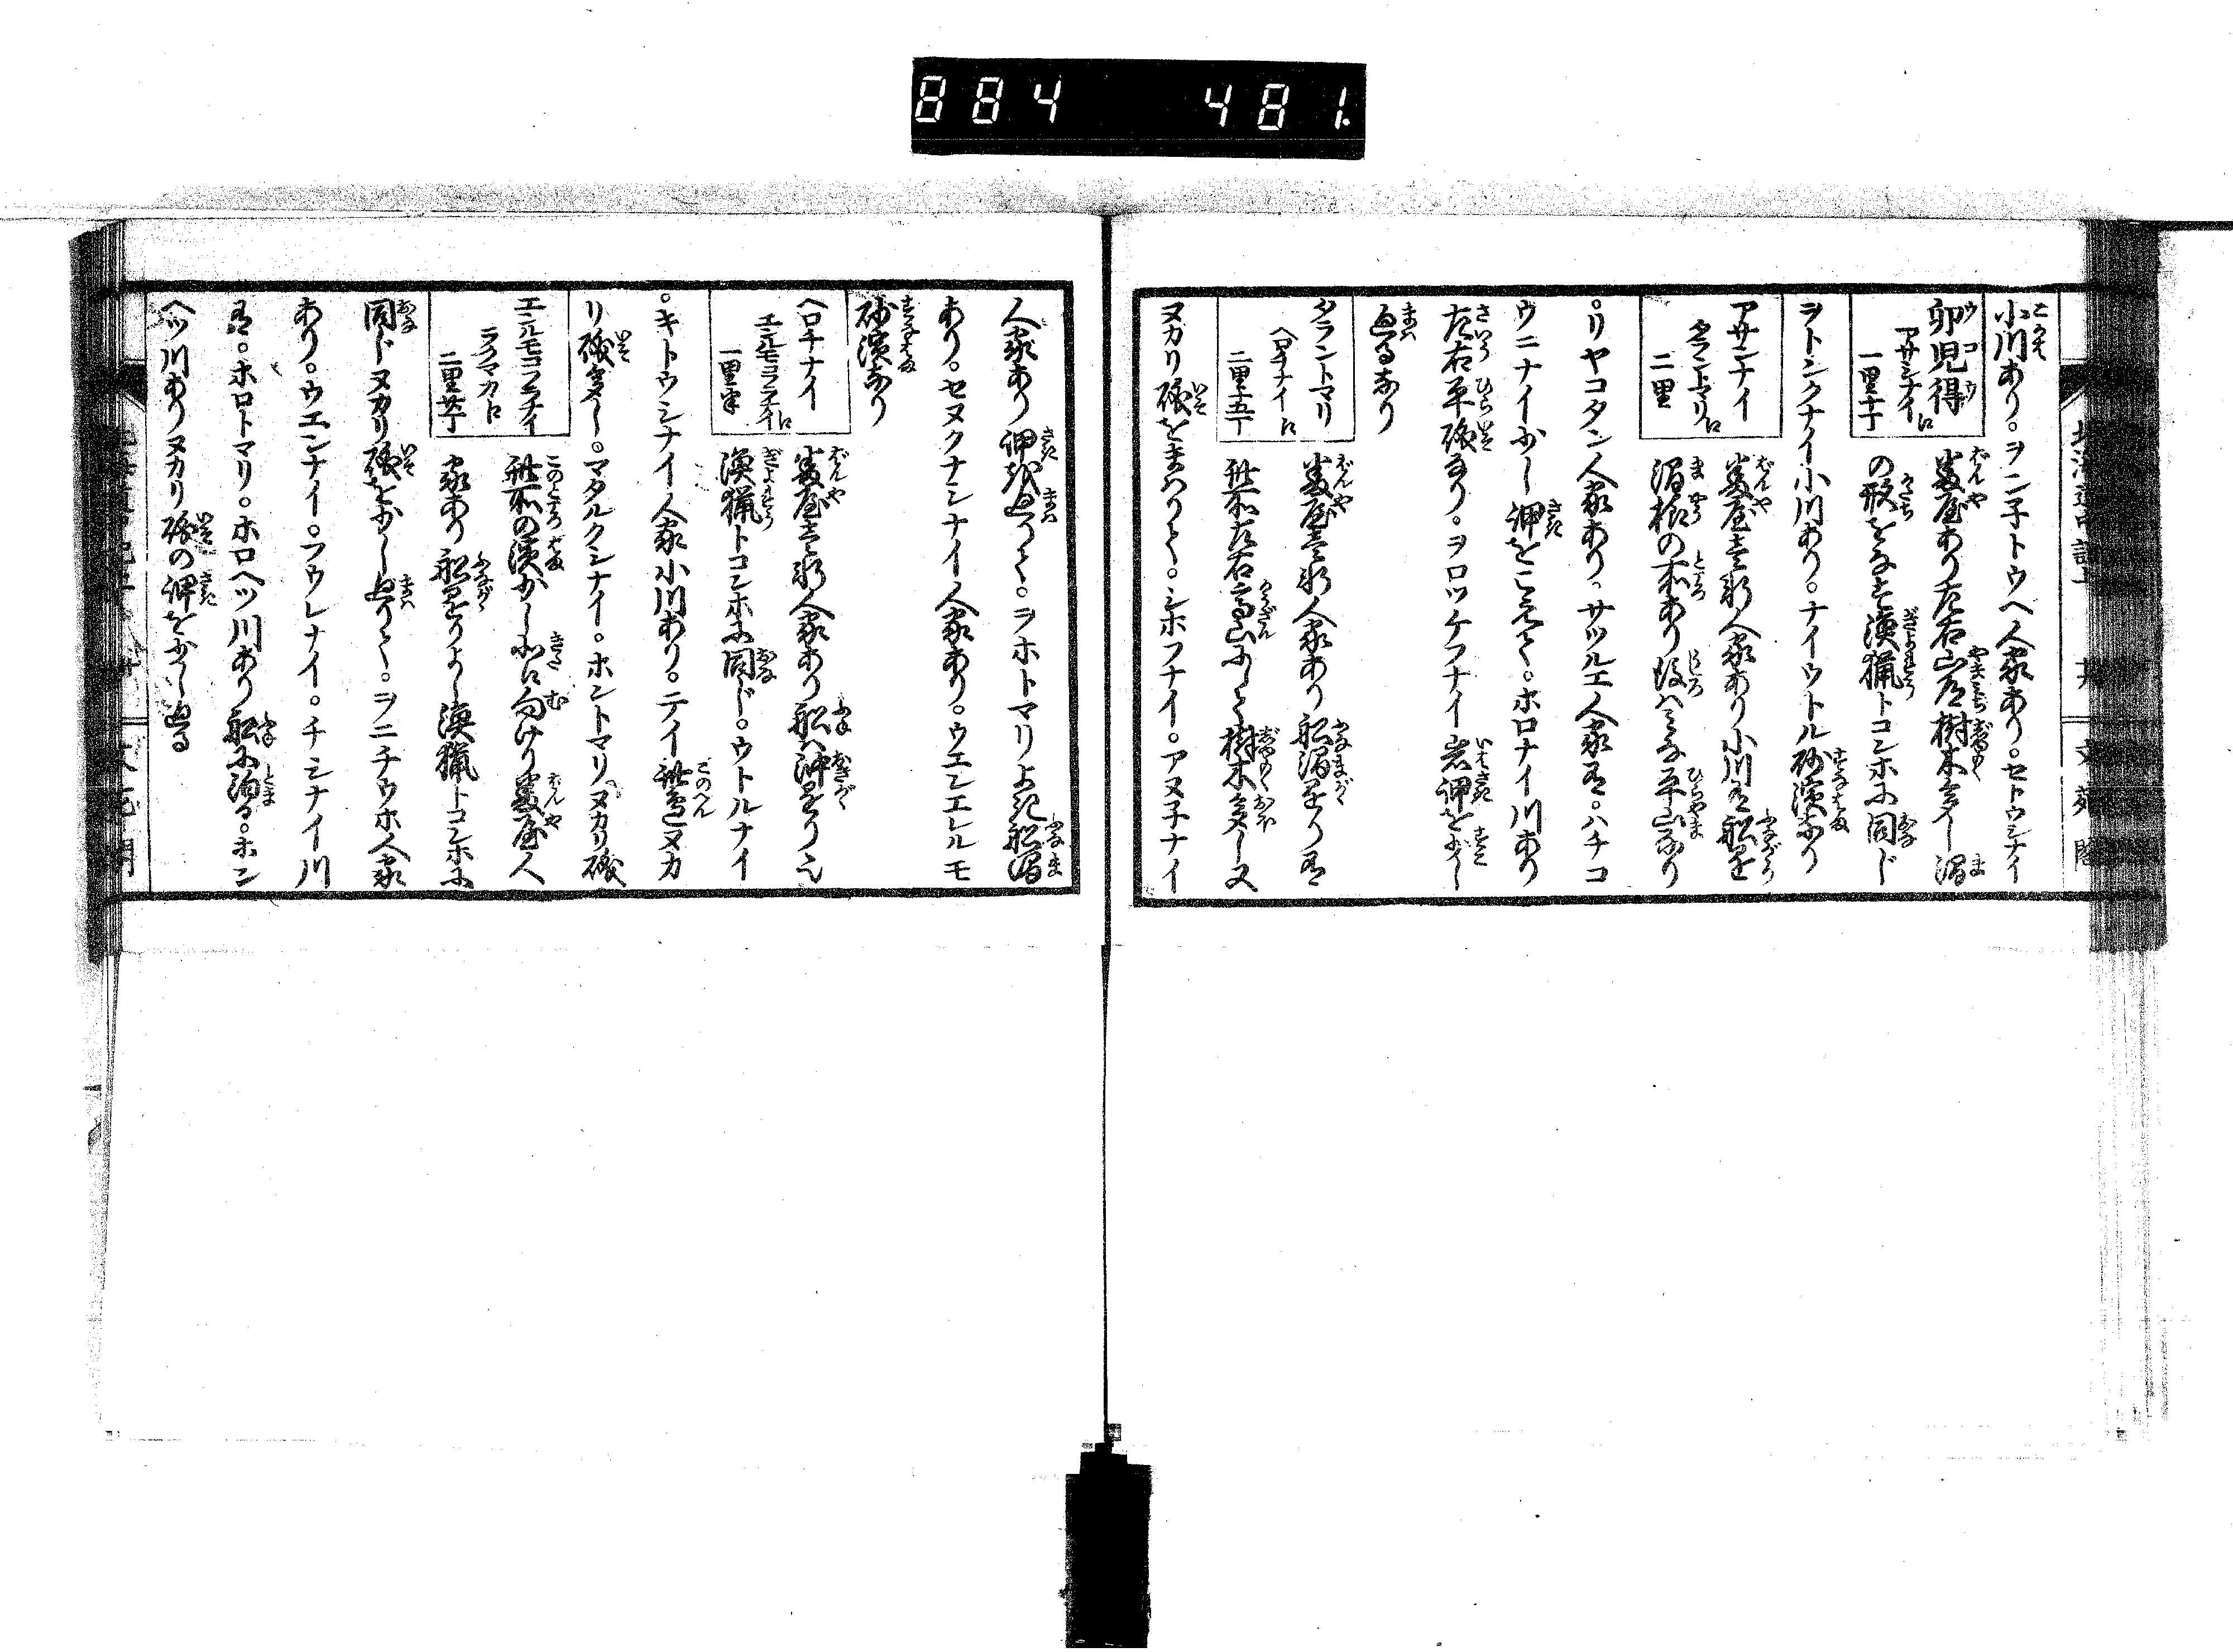 884 481.
小川あり。ヲニ子トウヘ人家あり。セトウシナイ
卯児得
アサンナイ江
一里十丁
番屋あり左右山道樹木多し澗
の形をなす漁猟トコンホに同じ
ヲトシクナイ小川あり。ナイウトル砂濱なり
アサンナイ
タラントマリ江
二里
番屋壱形人家あり小川有船
澗抔の所あり後ハミな平山なり
。リヤコタン人家あり。サツルエ人家有。ハチコ
ウニナイ少し岬をこえて。ホロナイ川あり
左右平磯あり。ヲロツケフナイ岩岬を少し
廻るなり
タラントマリ
ヘロチナイ江
二里十五丁
番屋壱形人家あり船澗
此所左右高山にして樹木多し又
ヌカリ磯をまハりて。シホフナイ。アヌ子ナイ
人家あり岬を廻つて。ヲホトマリよき船澗
あり。セヌクナシナイ人家あり。ウエンエレルモ
砂濱あり
ヘロチナイ
エンルモコラフナイ江
一里半
番屋壱形人家あり船ハ沖
漁猟トコンホに同じ。ウトルナイ
。キトウシナイ人家小川あり。テイ此邉ヌカ
リ磯多し。マタルクシナイ。ホントマリ。ヌカリ磯
エンルモコフラナイ
ラクマカ江
二里廿丁
此所の濱少し北に向けり番屋人
家あり船よし漁猟トコンホに
同じヌカリ磯を少し廻りて。ヲニチウホ人家
あり。ウエンナイ。フウレナイ。チシナイ川
有。ホロトマリ。ホロヘツ川あり船に泊る。ホン
ヘツ川ありヌカリ磯の岬を少し廻る